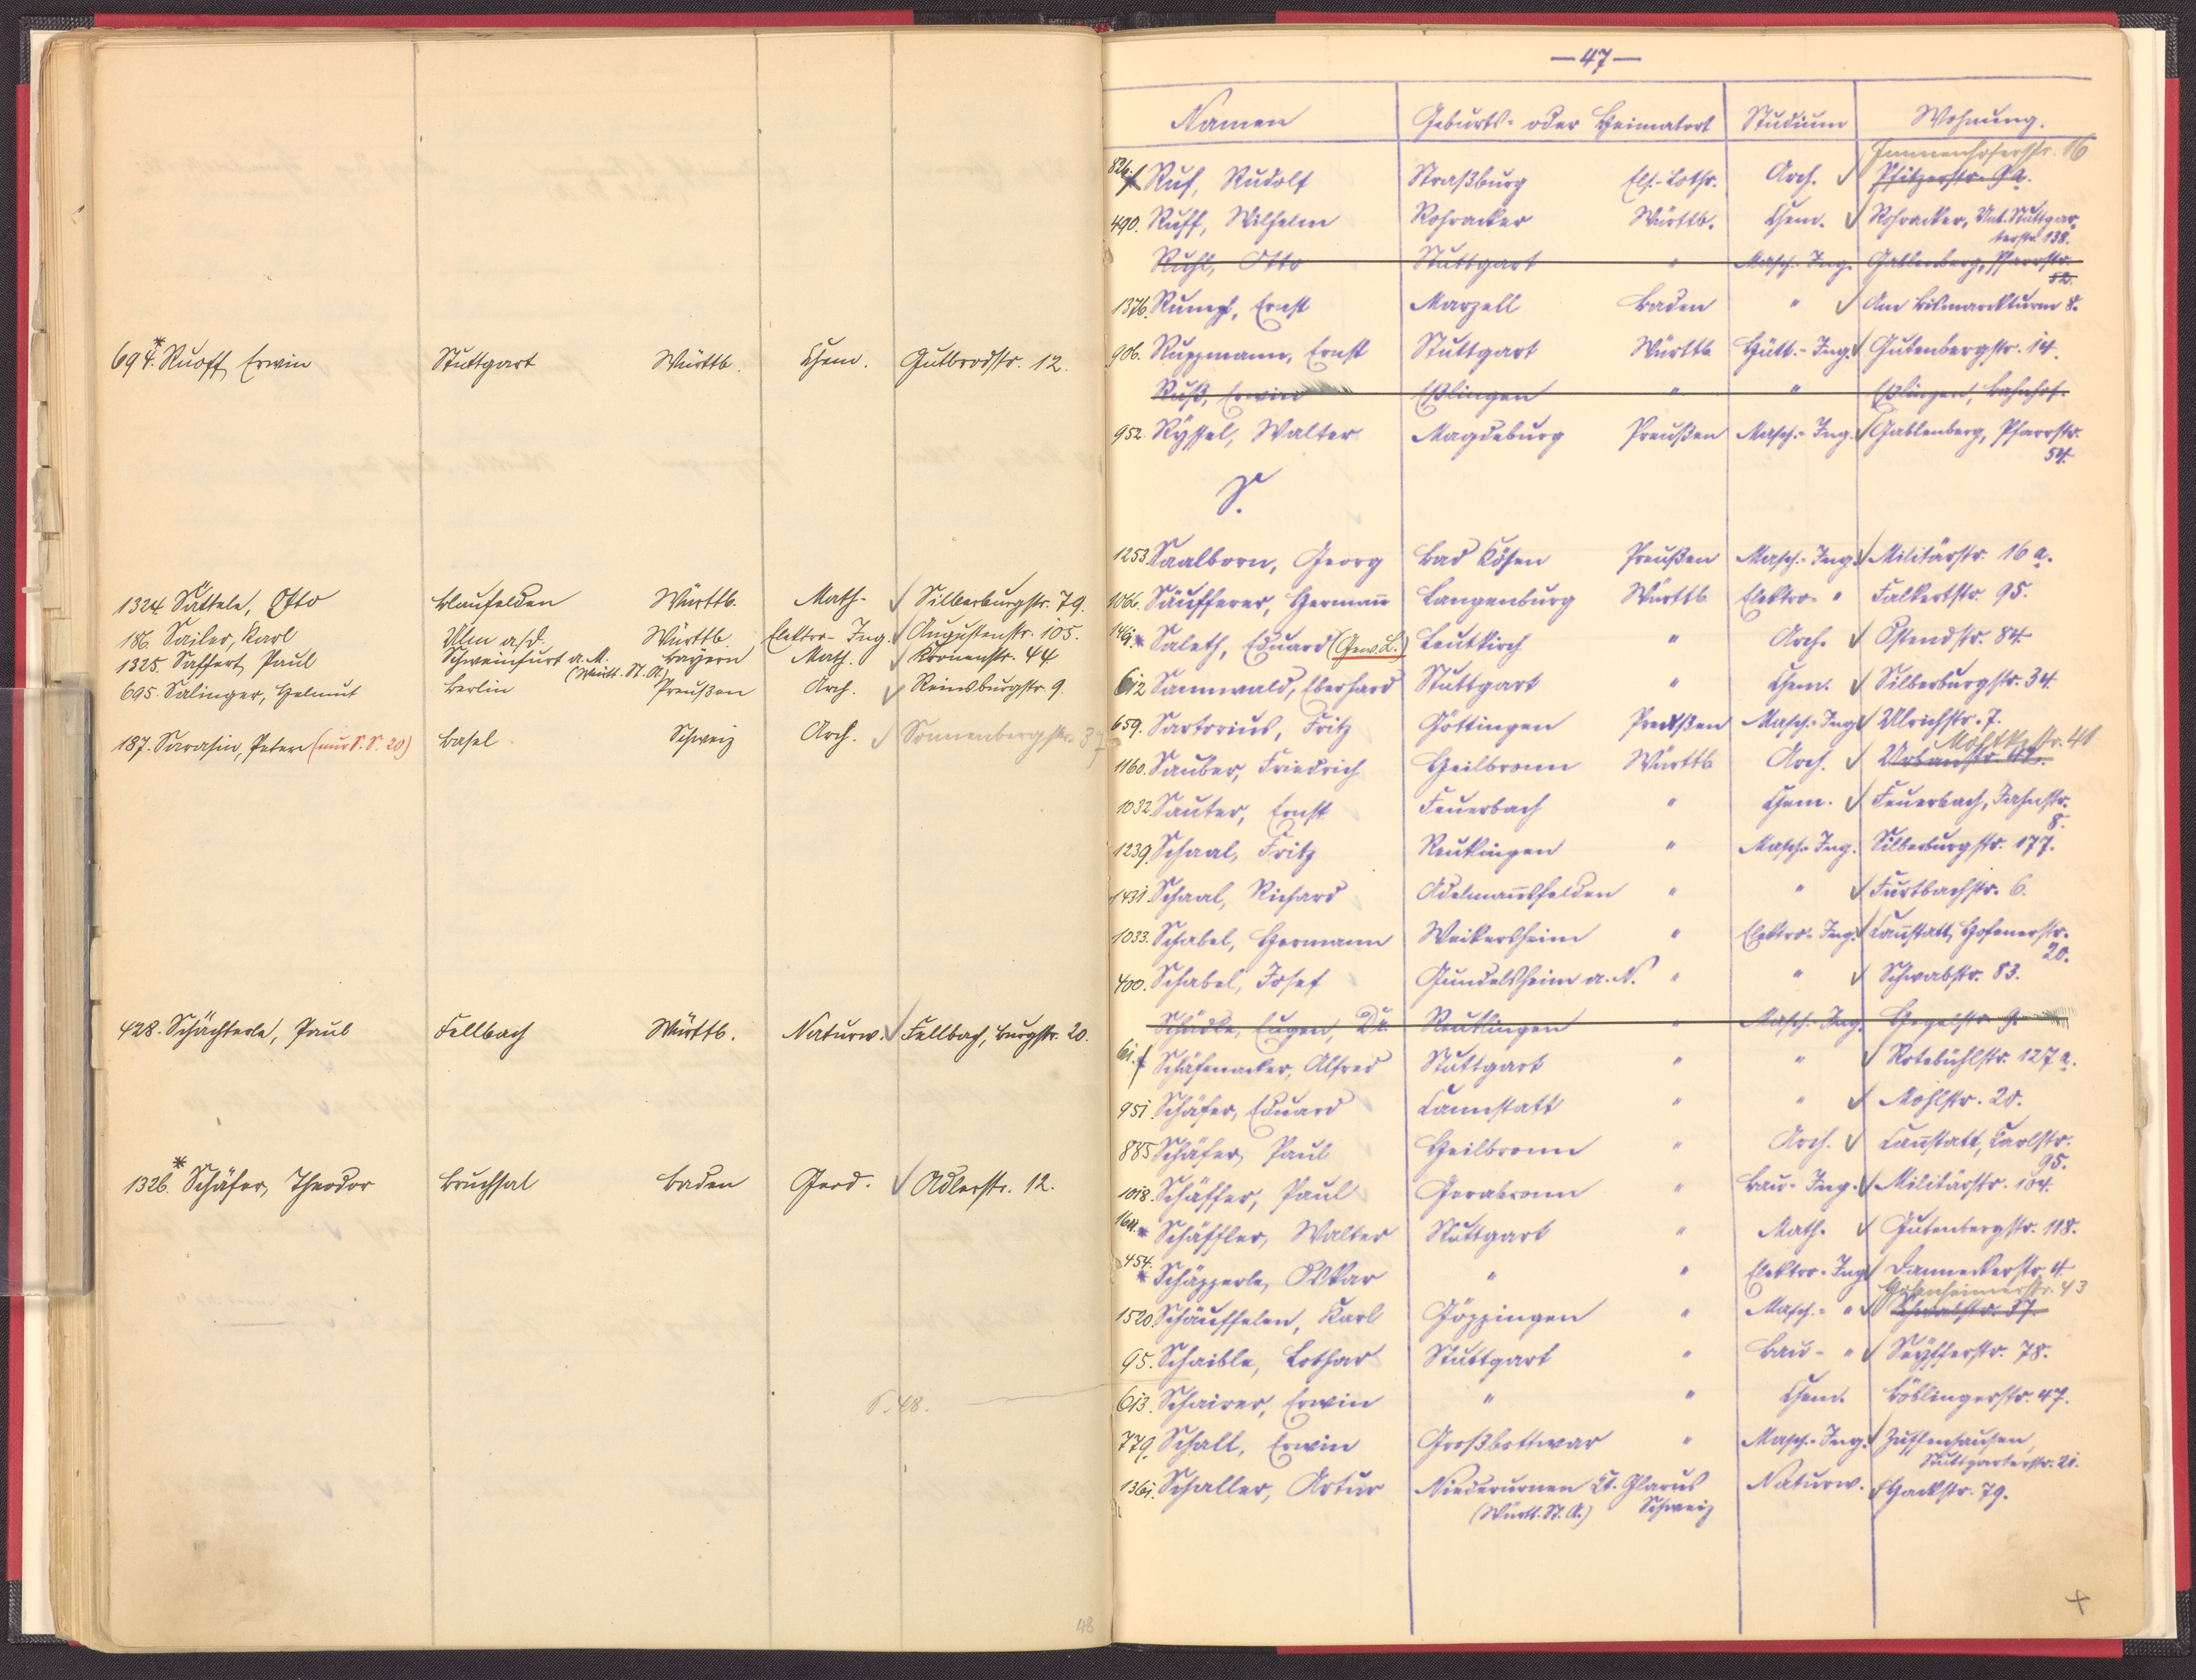 694.* Ruoff, Erwin Stuttgart Württb. Chem. Gutbrodstr. 12.
1324 Sättele, Otto Blaufelden Württb. Math. ✓ Silberburgstr. 79.
186. Sailer, Karl Ulm a/d. Württb. Elektro-Ing. ✓ Augustenstr. 105.
1325. Saffert, Paul Schweinfurt a. M. Bayern Math. ✓ Kronenstr. 44
(Württ. St. A.)
695. Salinger, Helmut Berlin Preußen Arch. ✓ Reinsburgstr. 9.
187. Sarasin, Peter (nur S. S. 20) Basel Schweiz Arch. ✓ Sonnenbergstr. 37
428. Schächterle, Paul Fellbach Württb. Naturw. ✓ Fellbach, Burgstr. 20.
1326.* Schäfer, Theodor Bruchsal Baden Geod. ✓ Adlerstr. 12.
S. 48.
48
— 47 —
Namen Geburts- oder Heimatort Studium Wohnung.
Immenhoferstr. 16
826. Ruf, Rudolf Straßburg Els.-Lothr. Arch. ✓ Pfitzerstr. 9a.
490. Ruff, Wilhelm Rohracker Württb. Chem. ✓ Rohracker, Unt. Stuttgar-
terstr. 138.
Ruhl, Otto Stuttgart " Masch.-Ing. Gablenberg, Pfarrstr.
52.
1376. Rumpf, Ernst Marzell Baden " ✓ Am Bismarckturm 8.
906. Ruppmann, Ernst Stuttgart Württb Hütt.-Ing. ✓ Gutenbergstr. 14.
Ruß, Erwin Eßlingen " " Eßlingen, Bahnhof.
952. Ryssel, Walter Magdeburg Preußen Masch.-Ing. ✓ Gablenberg, Pfarrstr.
54.
S.
1253. Saalborn, Georg Bad Kösen Preußen Masch.-Ing. ✓ Militärstr. 16a.
1066. Säufferer, Hermann̄ Langenburg Württb. Elektro- " Falkertstr. 95.
* Saleth, Eduard (Gew. L.) Leutkirch " Arch. ✓ Ostendstr. 84.
612 Sannwald, Eberhard Stuttgart " Chem. ✓ Silberburgstr. 34.
659. Sartorius, Fritz Göttingen Preußen Masch.-Ing. ✓ Ulrichstr. 7.
Moltkestr. 41
1160. Sauber, Friedrich Heilbronn Württb Arch. ✓ Urbanstr. 42.
1032. Sauter, Ernst Feuerbach " Chem. ✓ Feuerbach, Jahnstr.
8.
1239. Schaal, Fritz Reutlingen " Masch.-Ing. Silberburgstr. 177.
1431 Schaal, Richard Adelman̄sfelden " " ✓ Furtbachstr. 6.
1033. Schabel, Hermann Weikersheim " Elektro-Ing. ✓ Can̄statt, Hofenerstr.
20.
400. Schabel, Josef Gundelsheim a. N. " " ✓ Schwabstr. 83.
Schädle, Eugen, Du. Reutlingen " Masch.-Ing. Hegelstr. 9.
61. Schäfenacker, Alfred Stuttgart " " ✓ Rotebühlstr. 127a.
951. Schäfer, Eduard Cannstatt " " ✓ Mohlstr. 20.
885 Schäfer, Paul Heilbronn " Arch. ✓ Can̄statt, Karlstr.
95.
1018. Schäffer, Paul Gerabronn " Bau-Ing. ✓ Militärstr. 104.
* Schäffler, Walter Stuttgart " Math. ✓ Gutenbergstr. 118.
454.* Schäpperle, Oskar " " Elektro-Ing. ✓ Danneckerstr. 4
Hohenheimerstr. 43
1520. Schäuffelen, Karl Göppingen " Masch.- " ✓ Schwabstr. 37.
95. Schaible, Lothar Stuttgart " Bau- " ✓ Seyfferstr. 78.
613. Schairer, Erwin " " Chem. Böblingerstr. 47.
779. Schall, Erwin Großbottwar " Masch.-Ing. ✓ Zuffenhausen,
Stuttgarterstr. 21.
1361. Schaller, Artur Niederurnen Kt. Glarus Naturw. ✓ Hackstr. 79.
(Württ. St. A.) Schweiz